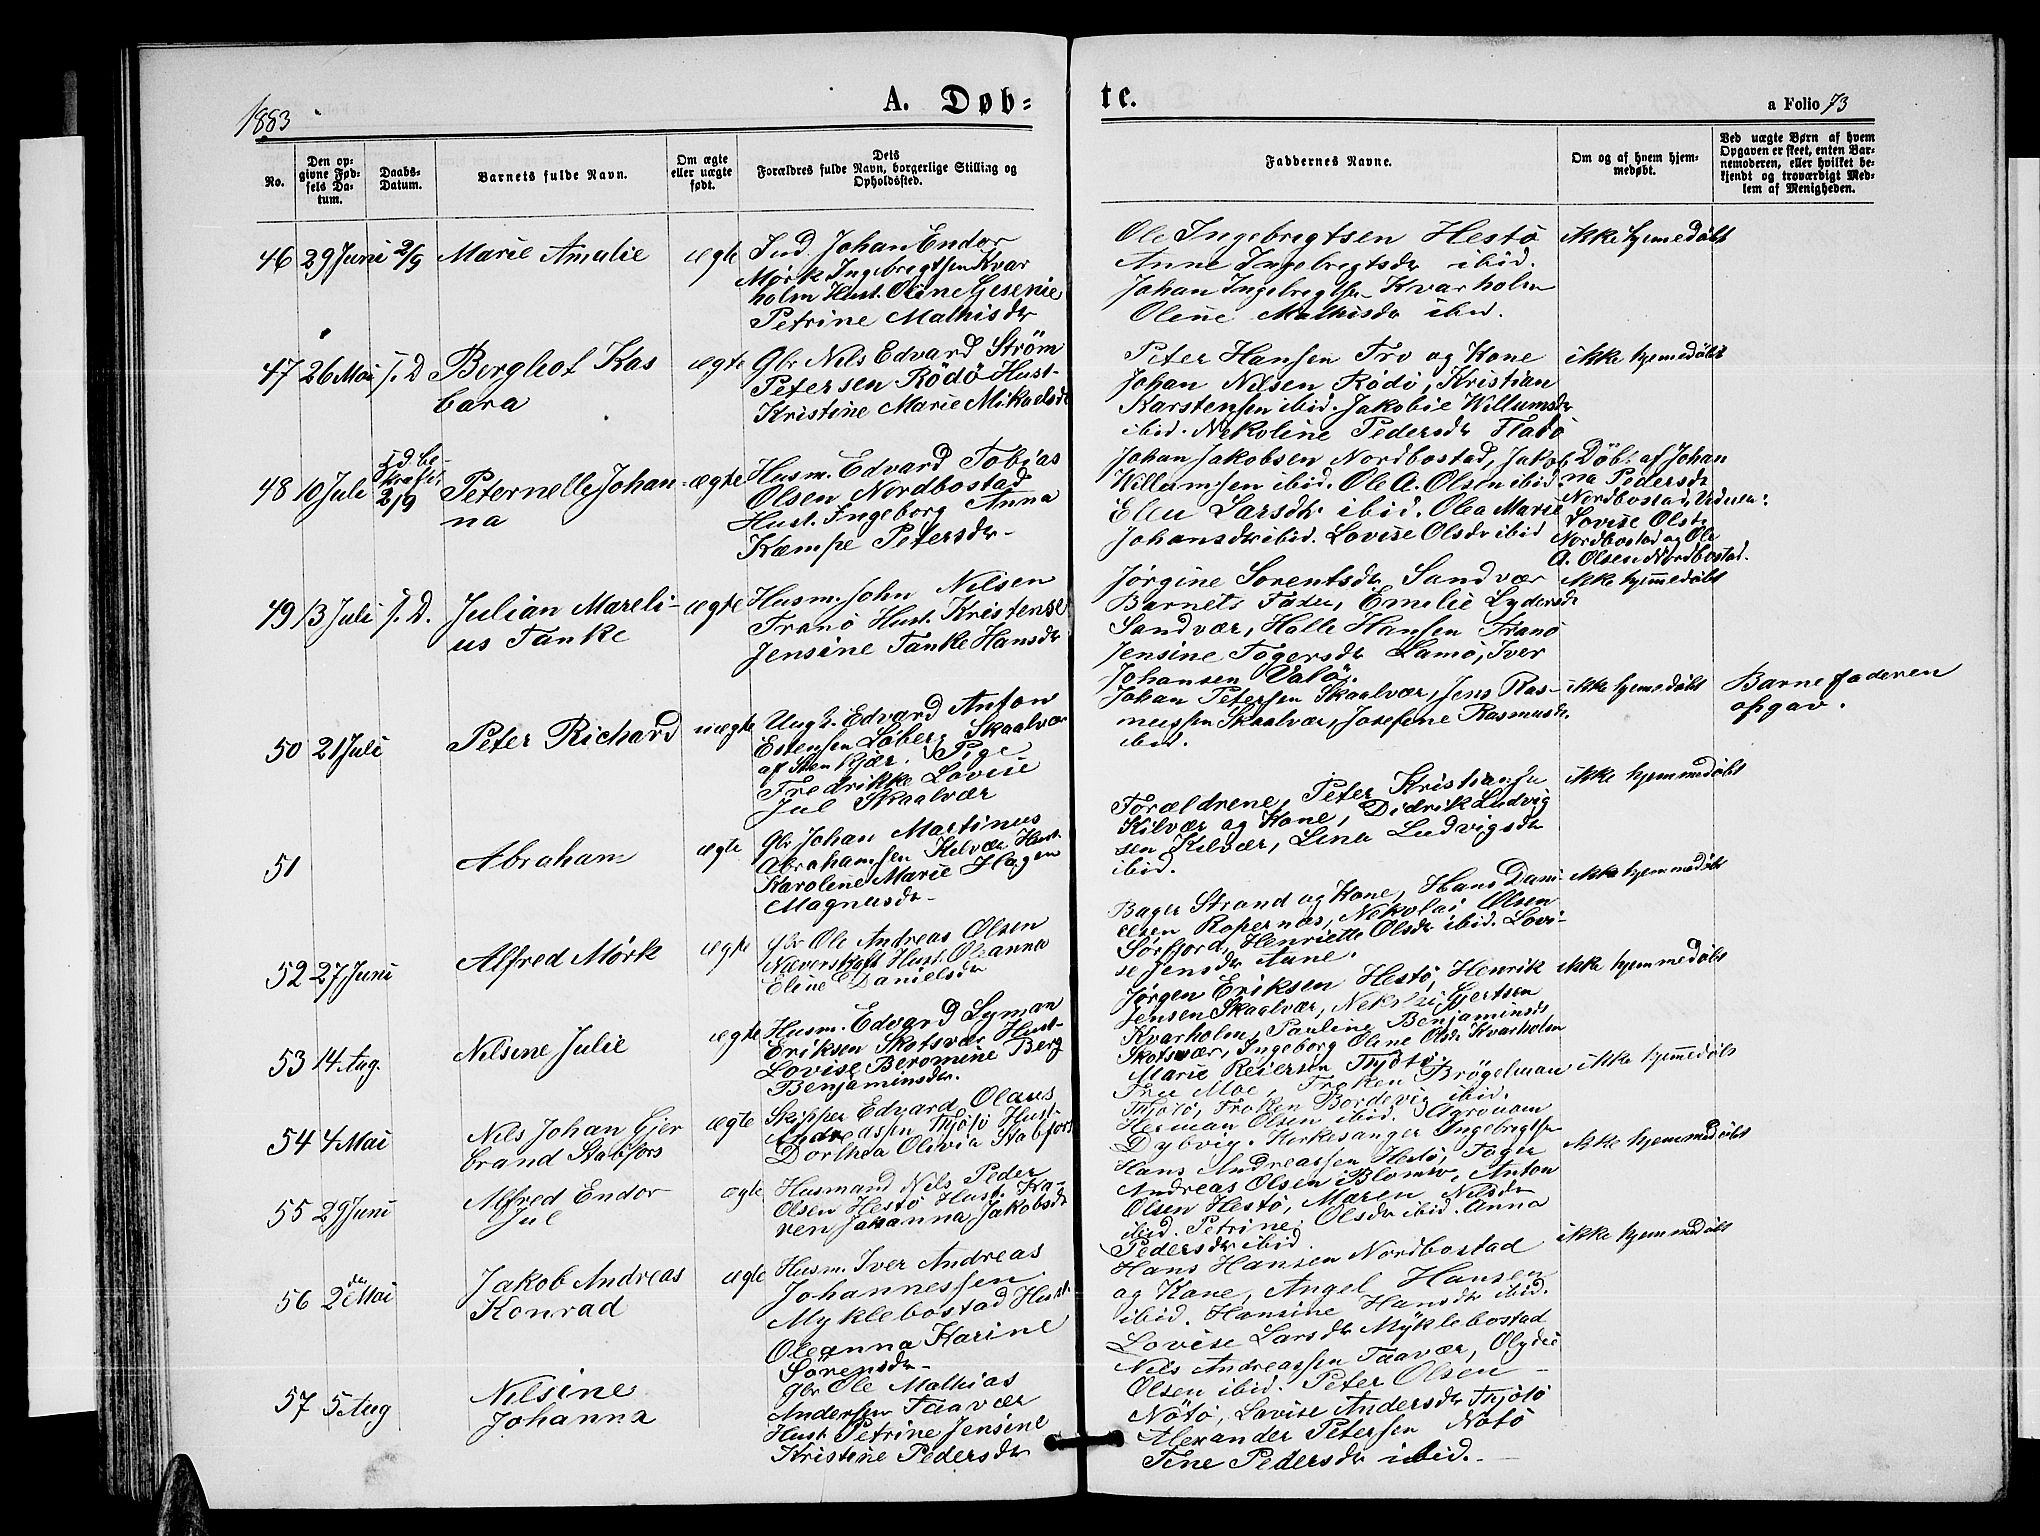 1883
A. Døb=
te.
a Folio 73
No.
Den op=
givne Fød=
sels Da=
tum.
Daabs=
Datum.
Barnets fulde Navn.
Om ægte
eller uægte
født.
Dets
Forældres fulde Navn, borgerlige Stilling og
Opholdssted.
Faddernes Navne.
Om og af hvem hjem=
medøbt.
Ved uægte Børn af hvem
Opgaven er skeet, enten Bar=
nemoderen, eller hvilket be=
kjendt og troværdigt Med=
lem af Menigheden.
46 29 Juni 2/9 Marie Amalie ægte
Ind. Johan Endor
Mörk Ingebregtsen Kvar
holm Hust. Oline Gesenie
Petrine Mathisdr
Ole Ingebregtsen Hestö
Anne Ingebregtsdr ibid.
Johan Ingebregtsen Kvarholm
Oline Mathisdr ibid.
ikke hjemedöbt
47 26 Mai s. D Bergleot Kas
bara
ægte
Gbr Nils Edvard Ström
Petersen Rödö Hust.
Kristine Marie Mikaelsdr
Peter Hansen Tro og Kone
Johan Nilsen Rödö, Kristian
Karstensen ibid. Jakobie Willumsdr
ibid. Nekoline Pedersdr Flatö
ikke hjemedöbt
48 10 Juli
2/9
Peternelle Johan
na
ægte
Husm. Edvard Tobias
Olsen Nordbostad
Hust. Ingeborg Anna
Kæmpe Petersdr
Johan Jakobsen Nordbostad, Jakob
Willumsen ibid. Ole A. Olsen ibid.
Elen Larsdr ibid. Olea Marie
Johansdr ibid. Lovise Olsdr ibid
Döbt af Johan
na Pedersdr
Nordbostad, Vidner:
Lovise Olsdr
Nordbostad og Ole
A. Olsen Nordbostad.
49 13 Juli s. D. Julian Mareli-
us Tanke
ægte
Husm. John Nilsen
Tranö Hust. Kristense
Jensine Tanke Hansdr
Jörgine Sorentsdr Sandvær
Barnets Fader, Emelie Lydersdr
Sandvær, Halle Hansen Tranö
Jensine Togersdr Lamö, Iver
Johansen Valö.
ikke hjemmedöbt
50 21 Juli Peter Richard uægte
Ungk. Edvard Anton
Estensen Loberg Skaalvær
af Stenkjær. Pige
Fredrikke Lovise
Jul Skaalvær
Johan Petersen Skaalvær, Jens Ras-
mussen Skaalvær, Josefine Rasmusdr
ibid.
ikke hjemedöbt
Barnefaderen
opgav.
51 Abraham ægte
Gbr Johan Martinus
Abrahamsen Kilvær Hust.
Karoline Marie Hagen
Magnusdr
Forældrene, Peter Kristiansen
Kilvær og Kone, Didrik Ludvig
sen Kilvær, Lena Ludvigsdr
ibid.
ikke hjemmedöbt
52 27 Juni Alfred Mörk ægte
Gbr Ole Andreas Olsen
Næverskaft Hust. Oleanna
Eline Danielsdr
Bager Strand og Kone, Hans Dani-
elsen Ropernæs, Nekolai Olsen
Sörfjord, Henriette Olsdr ibid. Lovi-
se Jensdr Aune.
ikke hjemmedöbt
53 14 Aug. Nilsine Julie ægte
Husm. Edvard Lyman
Eriksen Skotsvær Hust.
Lovise Beromine Berg
Benjaminsdr.
Jörgen Eriksen Hestö, Henrik
Jensen Skaalvær, Nekolai Gjertsen
Kvarholm, Pauline Benjaminsdr
Skotsvær, Ingeborg Oline Olsdr Kvarholm
Marie Reiersen Thjötö.
ikke hjemmedöbt
54 4 Mai Nils Johan Gjer
brand Stabfors
ægte
Skipper Edvard Olaus
Andreassen Thjötö Hust.
Dorthea Olivia Stabfors
Fru Moe, Fröken Brögelman
Thjötö, Fröken Bordevig ibid.
Herman Olsen ibid. Agronom
Dybvig. Kirkesanger Ingebregtsen
ikke hjemmedöbt
55 29 Juni Alfred Endor
Jul
ægte
Husmand Nils Peder
Olsen Hestö Hust. Ka-
ren Johanna Jakobsdr
Hans Andreassen Hestö, Toger
Andreas Olsen Blomsö, Anton
Olsen Hestö, Maren Nilsdr
ibid. Petrine Olsdr ibid. Anna
Pedersdr ibid.
ikke hjemmedöbt
56 2den Mai Jakob Andreas
Konrad
ægte
Husm. Iver Andreas
Johannessen
Myklebostad Hust.
Oleanna Karine
Sörensdr
Hans Hansen Nordbostad
og Kone, Angel Hansen
ibid. Hansine Hansdr ibid.
Lovise Larsdr Myklebostad
ikke hjemmedöbt
57 5 Aug Nilsine
Johanna
Gbr Ole Mathias
Andersen Taavær
Hust Petrine Jensine
Kristine Pedersdr
Nils Andreassen Taavær, Olydie
Olsen ibid. Peter Olsen
Nötö, Lovise Andersdr Thjötö
Alexander Petersen Nötö
Tine Pedersdr ibid.